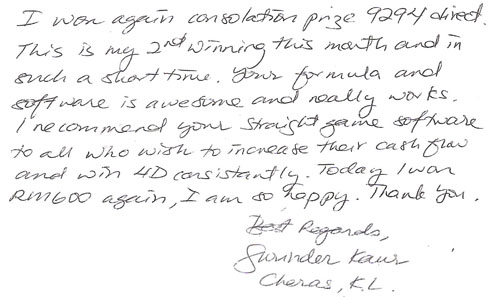 I won again consolation prize 9294 direct.
This is my 2nd winning this month and in
such a short time. Your formula and
software is awesome and really works.
I recommend your straight game software
to all who wish to increase their cash flow
and win 4D consistantly. Today I won
RM600 again, I am so happy. Thank you.
Best Regards,
Swinder Kaur
Cheras, K.L.